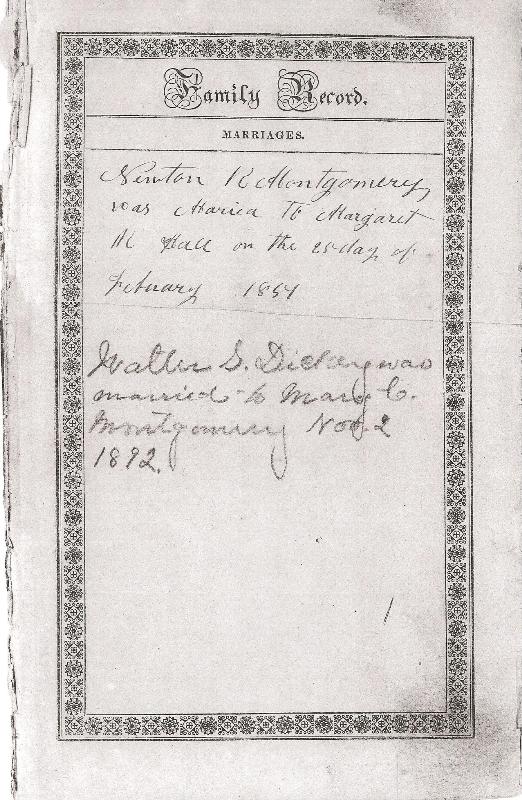 Family Record.
MARRIAGES.
Newton R Montgomery
was Maried To Margaret
M Hall on the day of
Febuary 1854
Walter S. Dickey was
married to Mary C.
Montgomery Nov. 2
1892.